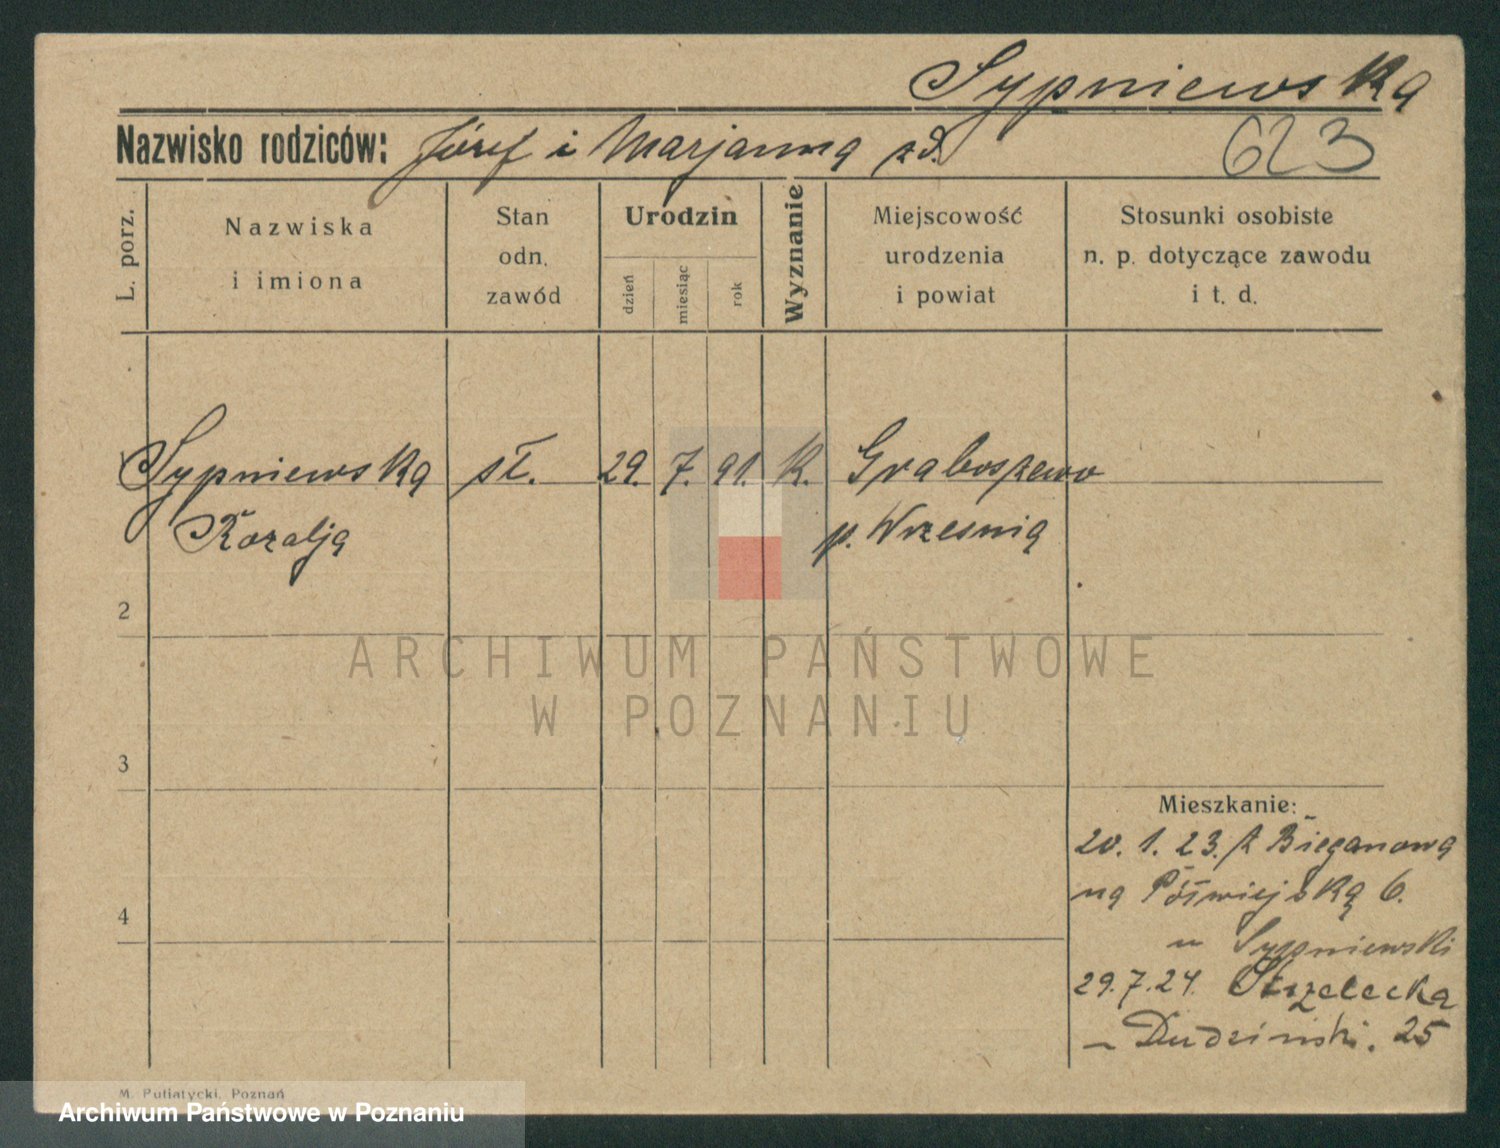 Sypniewska
Nazwisko rodziców: Józef i Marjanna zd.
623
L. porz.
Nazwiska
i imiona
Stan
odn.
zawód
Urodzin
dzień
miesiąc
rok
Wyznanie
Miejscowość
urodzenia
i powiat
Stosunki osobiste
n. p. dotyczące zawodu
i t. d.
Sypniewska sł. 29. 7. 91. K. Graboszewo
Rozalja p. Wrzesnia
2
3
4
ARCHIWUM PAŃSTWOWE
W POZNANIU
Mieszkanie:
20. 1. 23. z Bieganowa
na Półwiejską 6.
u Sypniewski
29.7.24. Strzelecka
– Dudziński. 25
M. Putiatycki, Poznań
Archiwum Państwowe w Poznaniu